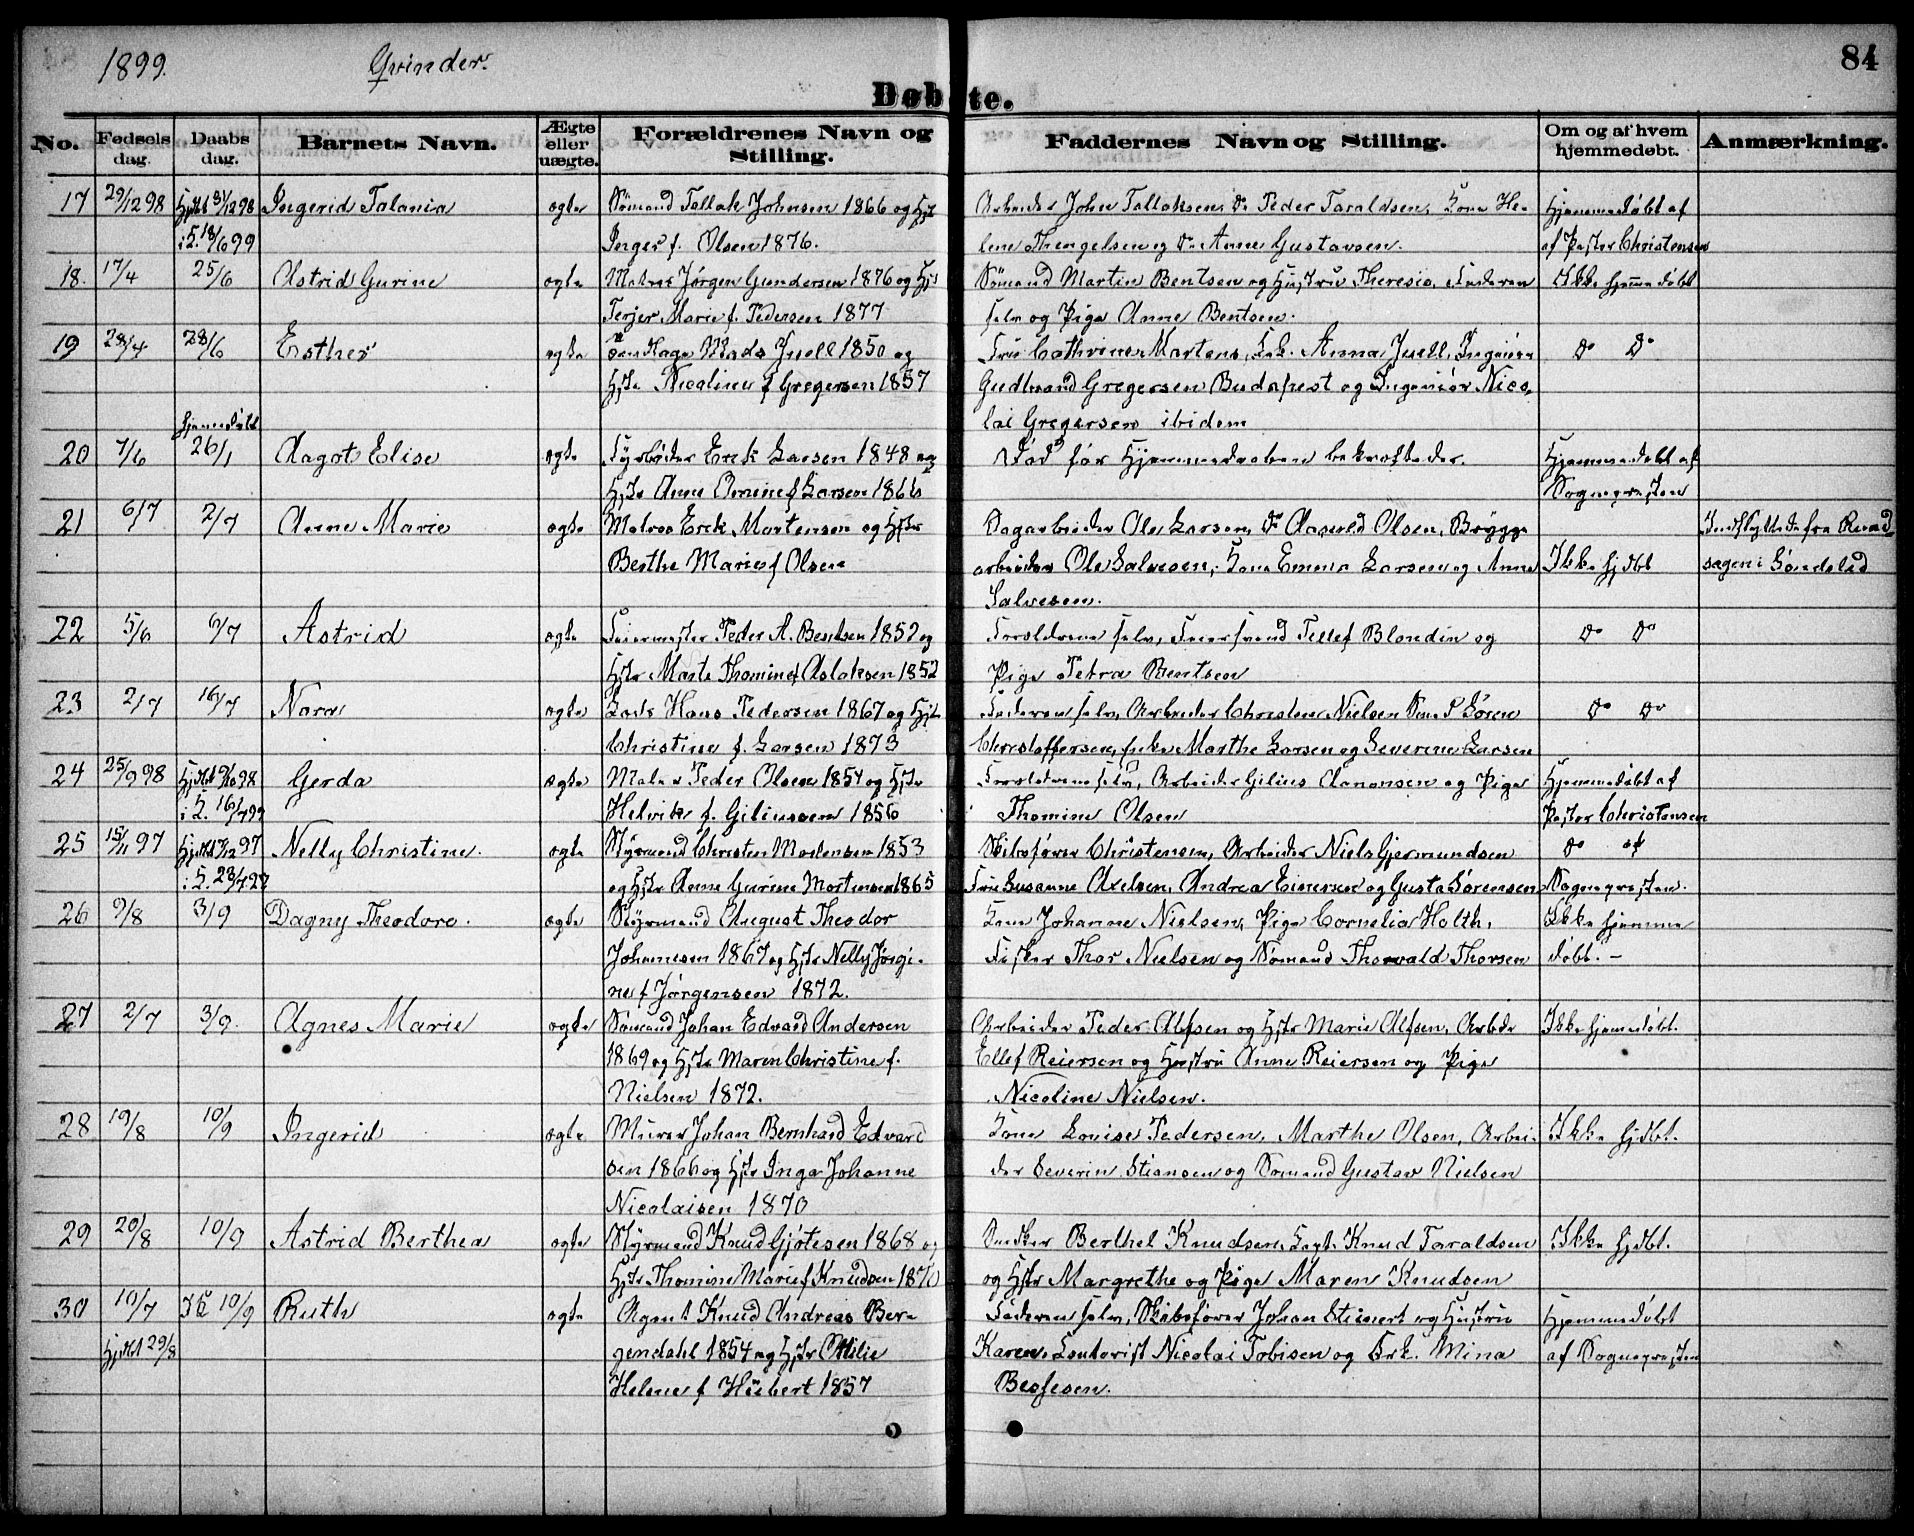 1899. Qvinder. 84
Døbte.
No. Fødsels dag. Daabs dag. Barnets Navn. Ægte eller uægte. Forældrenes Navn og Stilling. Faddernes Navn og Stilling. Om og af hvem hjemmedøbt. Anmærkning.
17 29/12 98 Hjdbt 31/12 98 Ingerid Talania ægte Sømand Tallak Johnsen 1866 og Hst Arbeider John Tallaksen, Do Peder Taraldsen, Kone He- Hjemmedøbt af
i K. 18/6 99 Inger f. Olsen 1876. lene Thengelsen og Do Anne Gustavsen. af Pastor Christensen
18. 17/4 25/6 Astrid Gurine ægte Matros Jørgen Gundersen 1876 og Hst Sømand Martin Bentsen og Hustru Theresia, Faderen Ikke hjemmedøbt
Terjer Marie f. Pedersen 1877 selv og Pige Anne Bentsen.
19 28/4 28/6 Esther ægte Mads Juell 1850 og Fru Cathrine Martens, Frk. Anna Juell, Ingeniør Do Do
Hstr Nicoline f Gregersen 1857 Gudbrand Gregersen Budapest og Ingeniør Nico-
hjemmedøbt lai Gregersen ibidem
20 7/6 26/1 Aagot Elise ægte Fyrbøder Erik Larsen 1848 og Død før Hjemmedaaben bekræftedes. Hjemmedøbt af
Hstr Anne Omine f Larsen 1866 Sognepresten
21 6/7 2/7 Anne Marie ægte Matros Erik Mortensen og Hstr Dagarbeider Ole Larsen, Do Aasuld Olsen, Brygge Indflyttede fra Rund
Berthe Marie f Olsen arbeider Ole Salvesen, Kone Emma Larsen og Anne Ikke hjdbt sagen i Søndeled
Salvesen.
22 5/6 9/7 Astrid ægte Feiermester Peder A. Bentsen 1852 og Forældrene selv, Feiersvend Tellef Blondin og Do Do
Hstr Marte Thomine f Aslaksen 1852 Pige Petra Bentsen
23 2/7 16/7 Nora ægte Lods Hans Pedersen 1867 og Hstr Faderen selv, Arbeider Christen Nielsen Søren Do Do
Christine f. Larsen 1873 Christoffersen, Marthe Larsen og Severine Larsen
24 25/9 98 Hjdbt 9/10 98 Gerda ægte Maler Peder Olsen 1854 og Hstr Forældrene selv, Arbeider Gilius Aanonsen og Pige Hjemmedøbt af
i K. 16/7 99 Helvike f. Giliussen 1856 Thomine Olsen Pastor Christensen
25 15/11 97 Hjdbt 97 Nelly Christine. ægte Styrmand Christen Mortensen 1853 Skibsfører Christensen, Arbeider Niels Gjermundsen Do af
i K. 23/7 99 og Hstr Anne Gurine Mortensen 1865 Fru Susanne Axelsen, Andrea Einersen og Gusta Sørensen Sognepresten.
26 9/8 3/9 Dagny Theodore. ægte Styrmand August Theodor Kone Johanne Nielsen, Pige Cornelia Holth, Ikke hjemme
Johannesen 1867 og Hstr Nelly Jørgi- Fisker Thor Nielsen og Sømand Thorvald Thorsen døbt. -
ne f Jørgensen 1872.
27 2/7 3/9. Agnes Marie ægte Sømand Johan Edvard Andersen Arbeider Peder Alfsen og Hstr Marie Alfsen, Arbdr Ikke hjemmedøbt.
1869 og Hstr Maren Christine f. Ellef Reiersen og Hustru Anne Reiersen og Pige
Nielsen 1872. Nicoline Nielsen.
28 19/8 10/9 Ingerid ægte Murer Johan Bernhard Edvard Kone Louise Pedersen, Marthe Olsen, Arbei- Ikke hjdbt.
sen 1866 og Hstr Inga Johanne der Severin Stiansen og Sømand Gustav Nielsen
Nicolaisen 1870
29 20/8 10/9 Astrid Berthea ægte Styrmand Knud Gjøtesen 1868 og Snedker Berthel Knudsen, Kapt. Knud Taraldsen Ikke hjdbt.
Hstr Thomine Marie f Knudsen 1870 og Hstr Margrethe og Pige Maren Knudsen
30 10/7 I K 10/9 Ruth ægte Agent Knud Andreas Ber- Faderen selv, Skibsfører Johan Stienert og Hustru Hjemmedøbt
Hjdbt 29/8 gendahl 1854 og Hstr Ottilie Karen, Kontorist Nicolai Tobisen og Frk. Mina af Sognepresten
Helene f Hübert 1857 Besfesen.